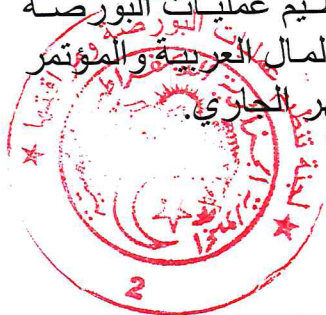 ـيم عمليات البورصة
لمال العربية والمؤتمر
ـر الجاري.
لجنة تنظيم عمليات البورصة ومراقبتها
2